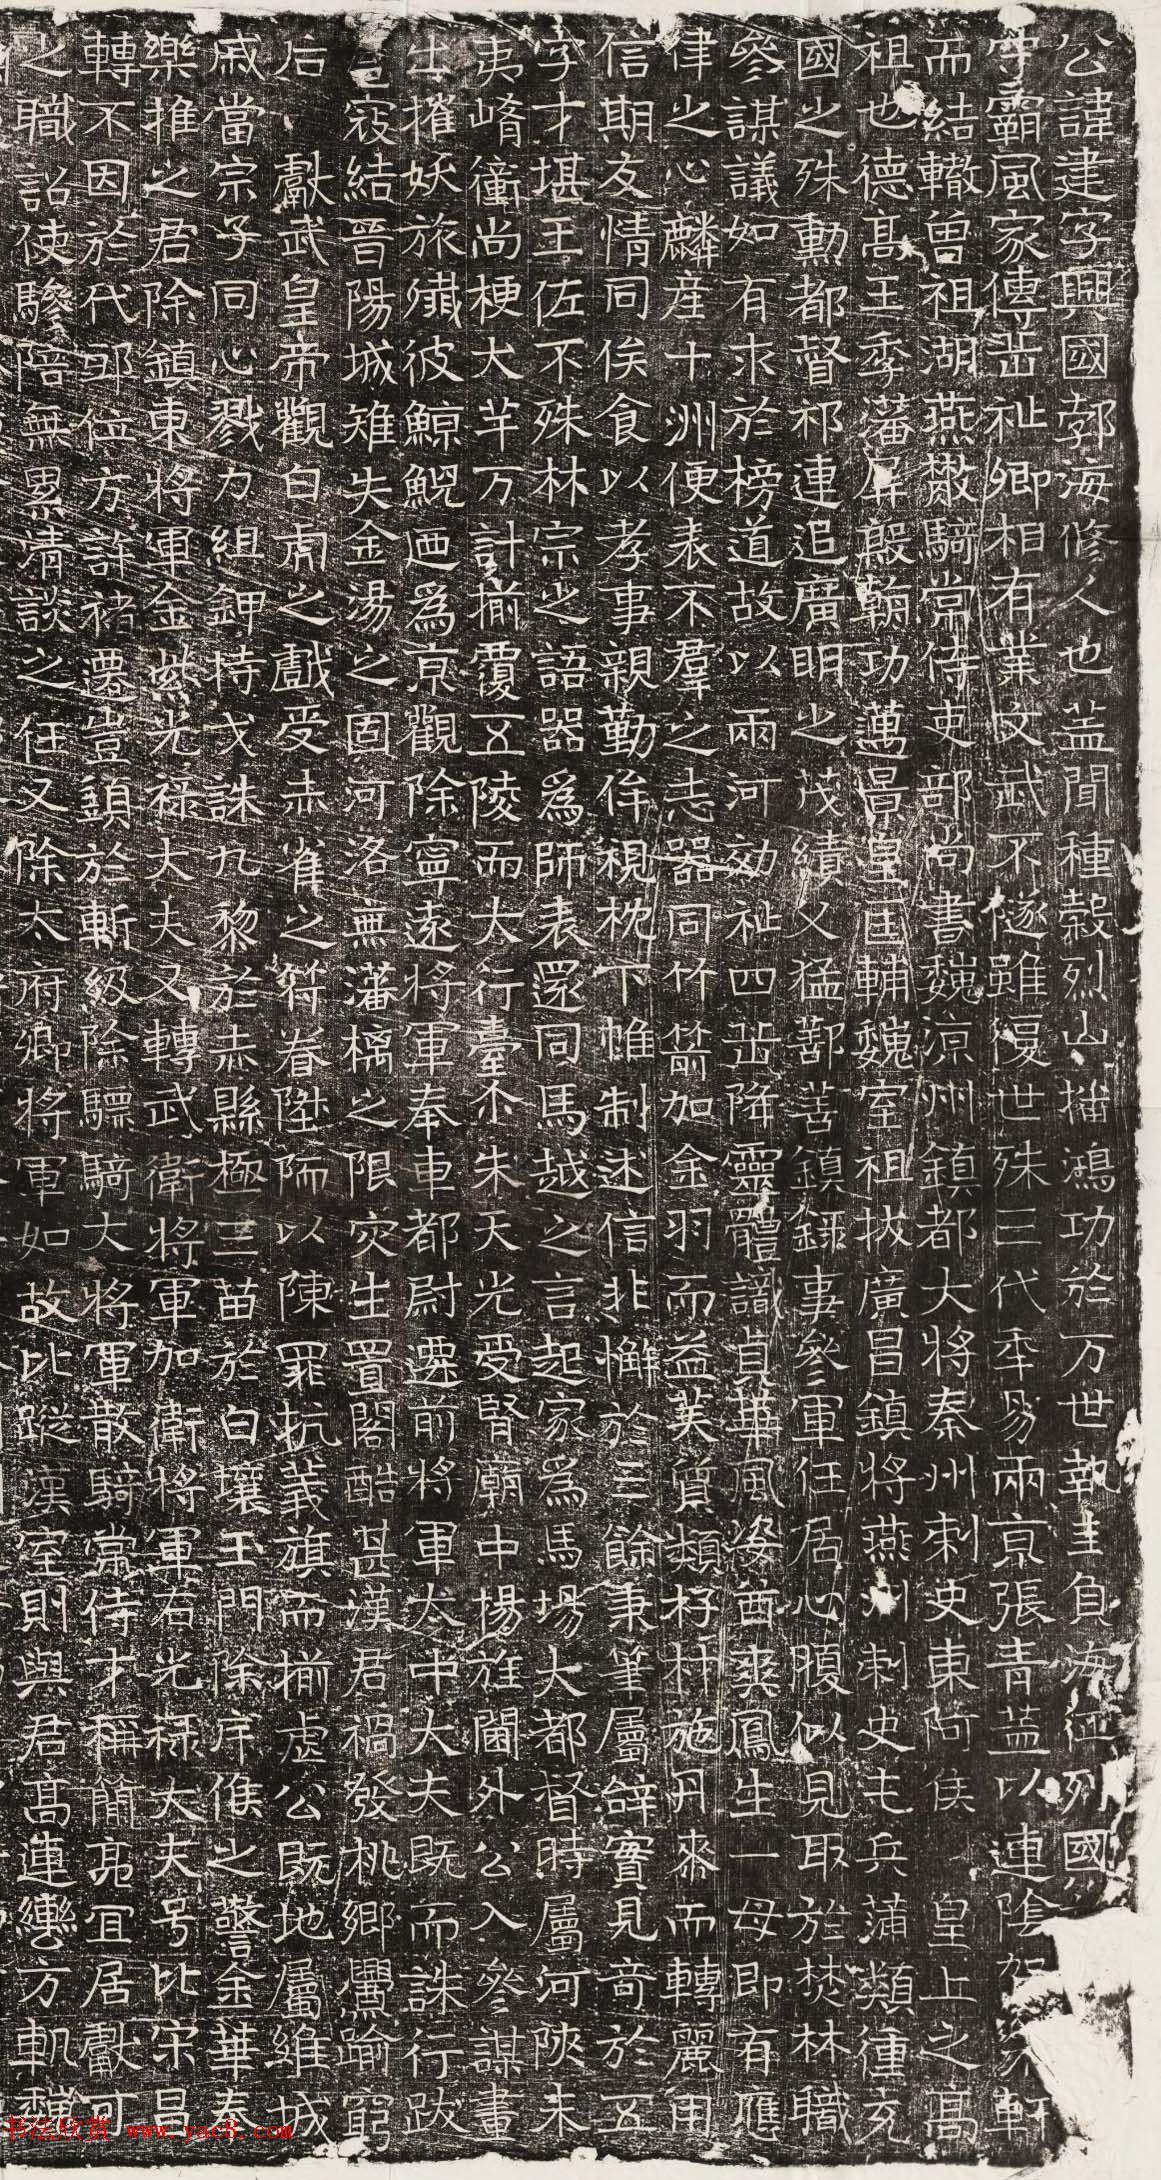 公諱建字興國勃海修人也盖聞種穀烈山播鴻功於万世執圭自海征列國
守霸風家傳岳祉卿相有業文武不隧雖復世殊三代年易兩京張青盖以連陰駕軒
而結轍曽祖湖燕散騎常侍吏部尚書魏涼州鎮都大將秦州刺史東阿侯皇上之高
祖也德髙王季藩屏殷朝功邁景皇匡輔魏室祖拔廣昌鎮將燕州刺史屯兵蒲類種充
國之殊勳都督祁連追廣明之茂績父猛鄯善鎮錄事參軍任居心腹似見取於焚林職
參謀議如有求於榜道故以兩河効祉四岳降靈體識貞華風姿酋爽鳳生一毋即有應
律之心麟産十洲便表不羣之志器同竹箭加金羽而益美質類杍杆施丹來而轉麗用
信期友情同俟食以孝事親勤侔視枕下帷制述信非懈於三餘秉筆屬辭實見竒於五
字才堪王佐不殊林宗之語器爲師表還同馬越之言起家爲馬場大都督時屬河陝未
夷崤衝尚梗犬羊万計揃覆五陵而大行臺尒朱天光受脤廟中揚旌閫外公入參謀畫
出摧妖旅殲彼鯨鯢廼爲京觀除寧遠將軍奉車都尉遷前將軍太中大夫既而誅行跋
扈寇結晉陽城雉失金湯之固河洛無藩槁之限灾生置閣酷甚漢君禍發桃鄉釁踰窮
后獻武皇帝觀白虎之戲受赤雀之符眷陞陑以陳罪抗義旗而揃虐公既地屬維城
戚當宗子同心戮力組鉀持戈誅九黎於赤縣極三苗於白壤玉門除斥候之警金華奏
樂推之君除鎮東將軍金紫光祿大夫又轉武衛將軍加衛將軍右光祿大夫号比宋昌
轉不因於代邸位方許褚遷豈鎮於斬級除驃騎大將軍散騎常侍才稱簡亮宜居獻可
之職詔使驂陪無累清談之任又除太府卿將軍如故比蹤漢室則與君髙連轡方軌魏
书法欣赏 www.yac8.com